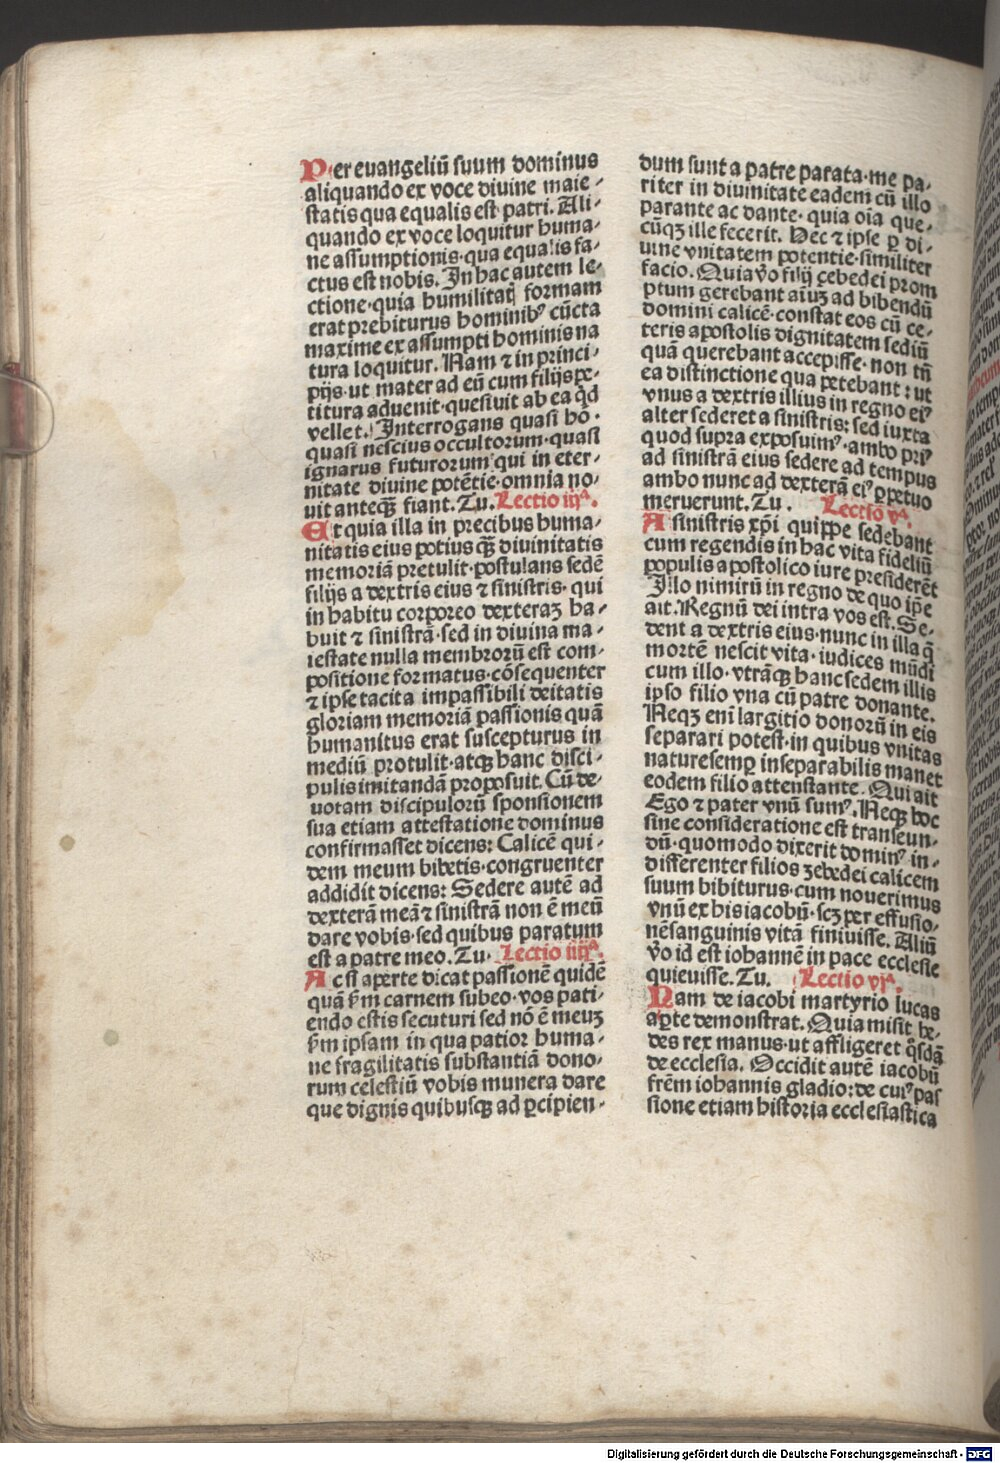 Per euangeliū suum dominus
aliquando ex voce diuine maie-
statis qua equalis est patri. Ali-
quando ex voce loquitur huma-
ne assumptionis· qua equalis fa-
ctus est nobis. In hac autem le-
ctione· quia humilitatꝭ formam
erat prebiturus hominibꝰ cūcta
maxime ex assumpti hominis na
tura loquitur. Nam ⁊ in princi-
pijs· ut mater ad eū cum filijs pe-
titura aduenit· quesiuit ab ea qͥd
vellet. Interrogans quasi ho-
quasi nescius occultorum· quasi
ignarus futurorum· qui in eter-
nitate diuine potētie· omnia no-
uit anteqͣꝫ fiant. Tu. Lectio iijª.
Et quia illa in precibus huma-
nitatis eius potius qͣꝫ diuinitatis
memoriā pretulit· postulans sedē
filijs a dextris eius ⁊ sinistris· qui
in habitu corporeo dexteraꝫ ha-
buit ⁊ sinistrā· sed in diuina ma-
iestate nulla membrorū est com-
positione formatus· cōsequenter
⁊ ipse tacita impassibili deitatis
gloriam memoriā passionis quā
humanitus erat suscepturus in
mediū protulit· atqꝫ hanc disci-
pulis imitandā proposuit. Cū de-
uotam discipulorū sponsionem
sua etiam attestatione dominus
confirmasset dicens: Calicē qui-
dem meum bibetis· congruenter
addidit dicens: Sedere autē ad
dexterā meā ⁊ sinistrā non ē meū
dare vobis· sed quibus paratum
est a patre meo. Tu. Lectio iiijª.
Ac si aperte dicat passionē quidē
quā ẜm carnem subeo· vos pati-
endo estis secuturi sed nō ē meuꝫ
ẜm ipsam in qua patior huma-
ne fragilitatis substantiā dono-
rum celestiū vobis munera dare
que dignis quibusqꝫ ad ꝑcipien-
dum sunt a patre parata· me pa-
riter in diuinitate eadem cū illo
parante ac dante· quia oīa que-
cūqꝫ ille fecerit. Hec ⁊ ipse ꝑ di-
uine vnitatem potentie· similiter
facio. Quia v̊o filij çebedei prom
ptum gerebant aīuꝫ ad bibendū
domini calicē· constat eos cū ce-
teris apostolis dignitatem sediū
quā querebant accepisse· non tn̄
ea distinctione qua petebant: ut
vnus a dextris illius in regno eiꝰ
alter sederet a sinistris: sed iuxta
quod supra exposuimꝰ· ambo priꝰ
ad sinistrā eius sedere ad tempus
ambo nunc ad dexterā eiꝰ ꝑpetuo
meruerunt. Tu. Lectio vª.
A sinistris xp̄i quippe sedebant
cum regendis in hac vita fideliū
populis apostolico iure presiderēt
Illo nimirū in regno de quo ip̄e
ait. Regnū dei intra vos est. Se-
dent a dextris eius· nunc in illa q̄
mortē nescit vita· iudices mūdi
cum illo· vtrāqꝫ hanc sedem illis
ipso filio vna cū patre donante.
Neqꝫ eni largitio donorū in eis
separari potest· in quibus vnitas
nature semꝑ inseparabilis manet
eodem filio attestante. Qui ait
Ego ⁊ pater vnū sumꝰ. Neqꝫ hoc
sine consideratione est transeun-
dū· quomodo dixerit dominꝰ in-
differenter filios zebedei calicem
suum bibituros· cum nouerimus
vnū ex his iacobū· scꝫ per effusio-
nē sanguinis vitā finiuisse. Aliū
v̊o id est iohannē in pace ecclesie
quieuisse. Tu. Lectio vjª.
Nam de iacobi martyrio lucas
aꝑte demonstrat. Quia misit he-
des rex manus· ut affligeret qͦsdā
de ecclesia. Occidit autē iacobū
frēm iohannis gladio: de cuiꝰ pas
sione etiam historia ecclesiastica
Digitalisierung gefördert durch die Deutsche Forschungsgemeinschaft - DFG